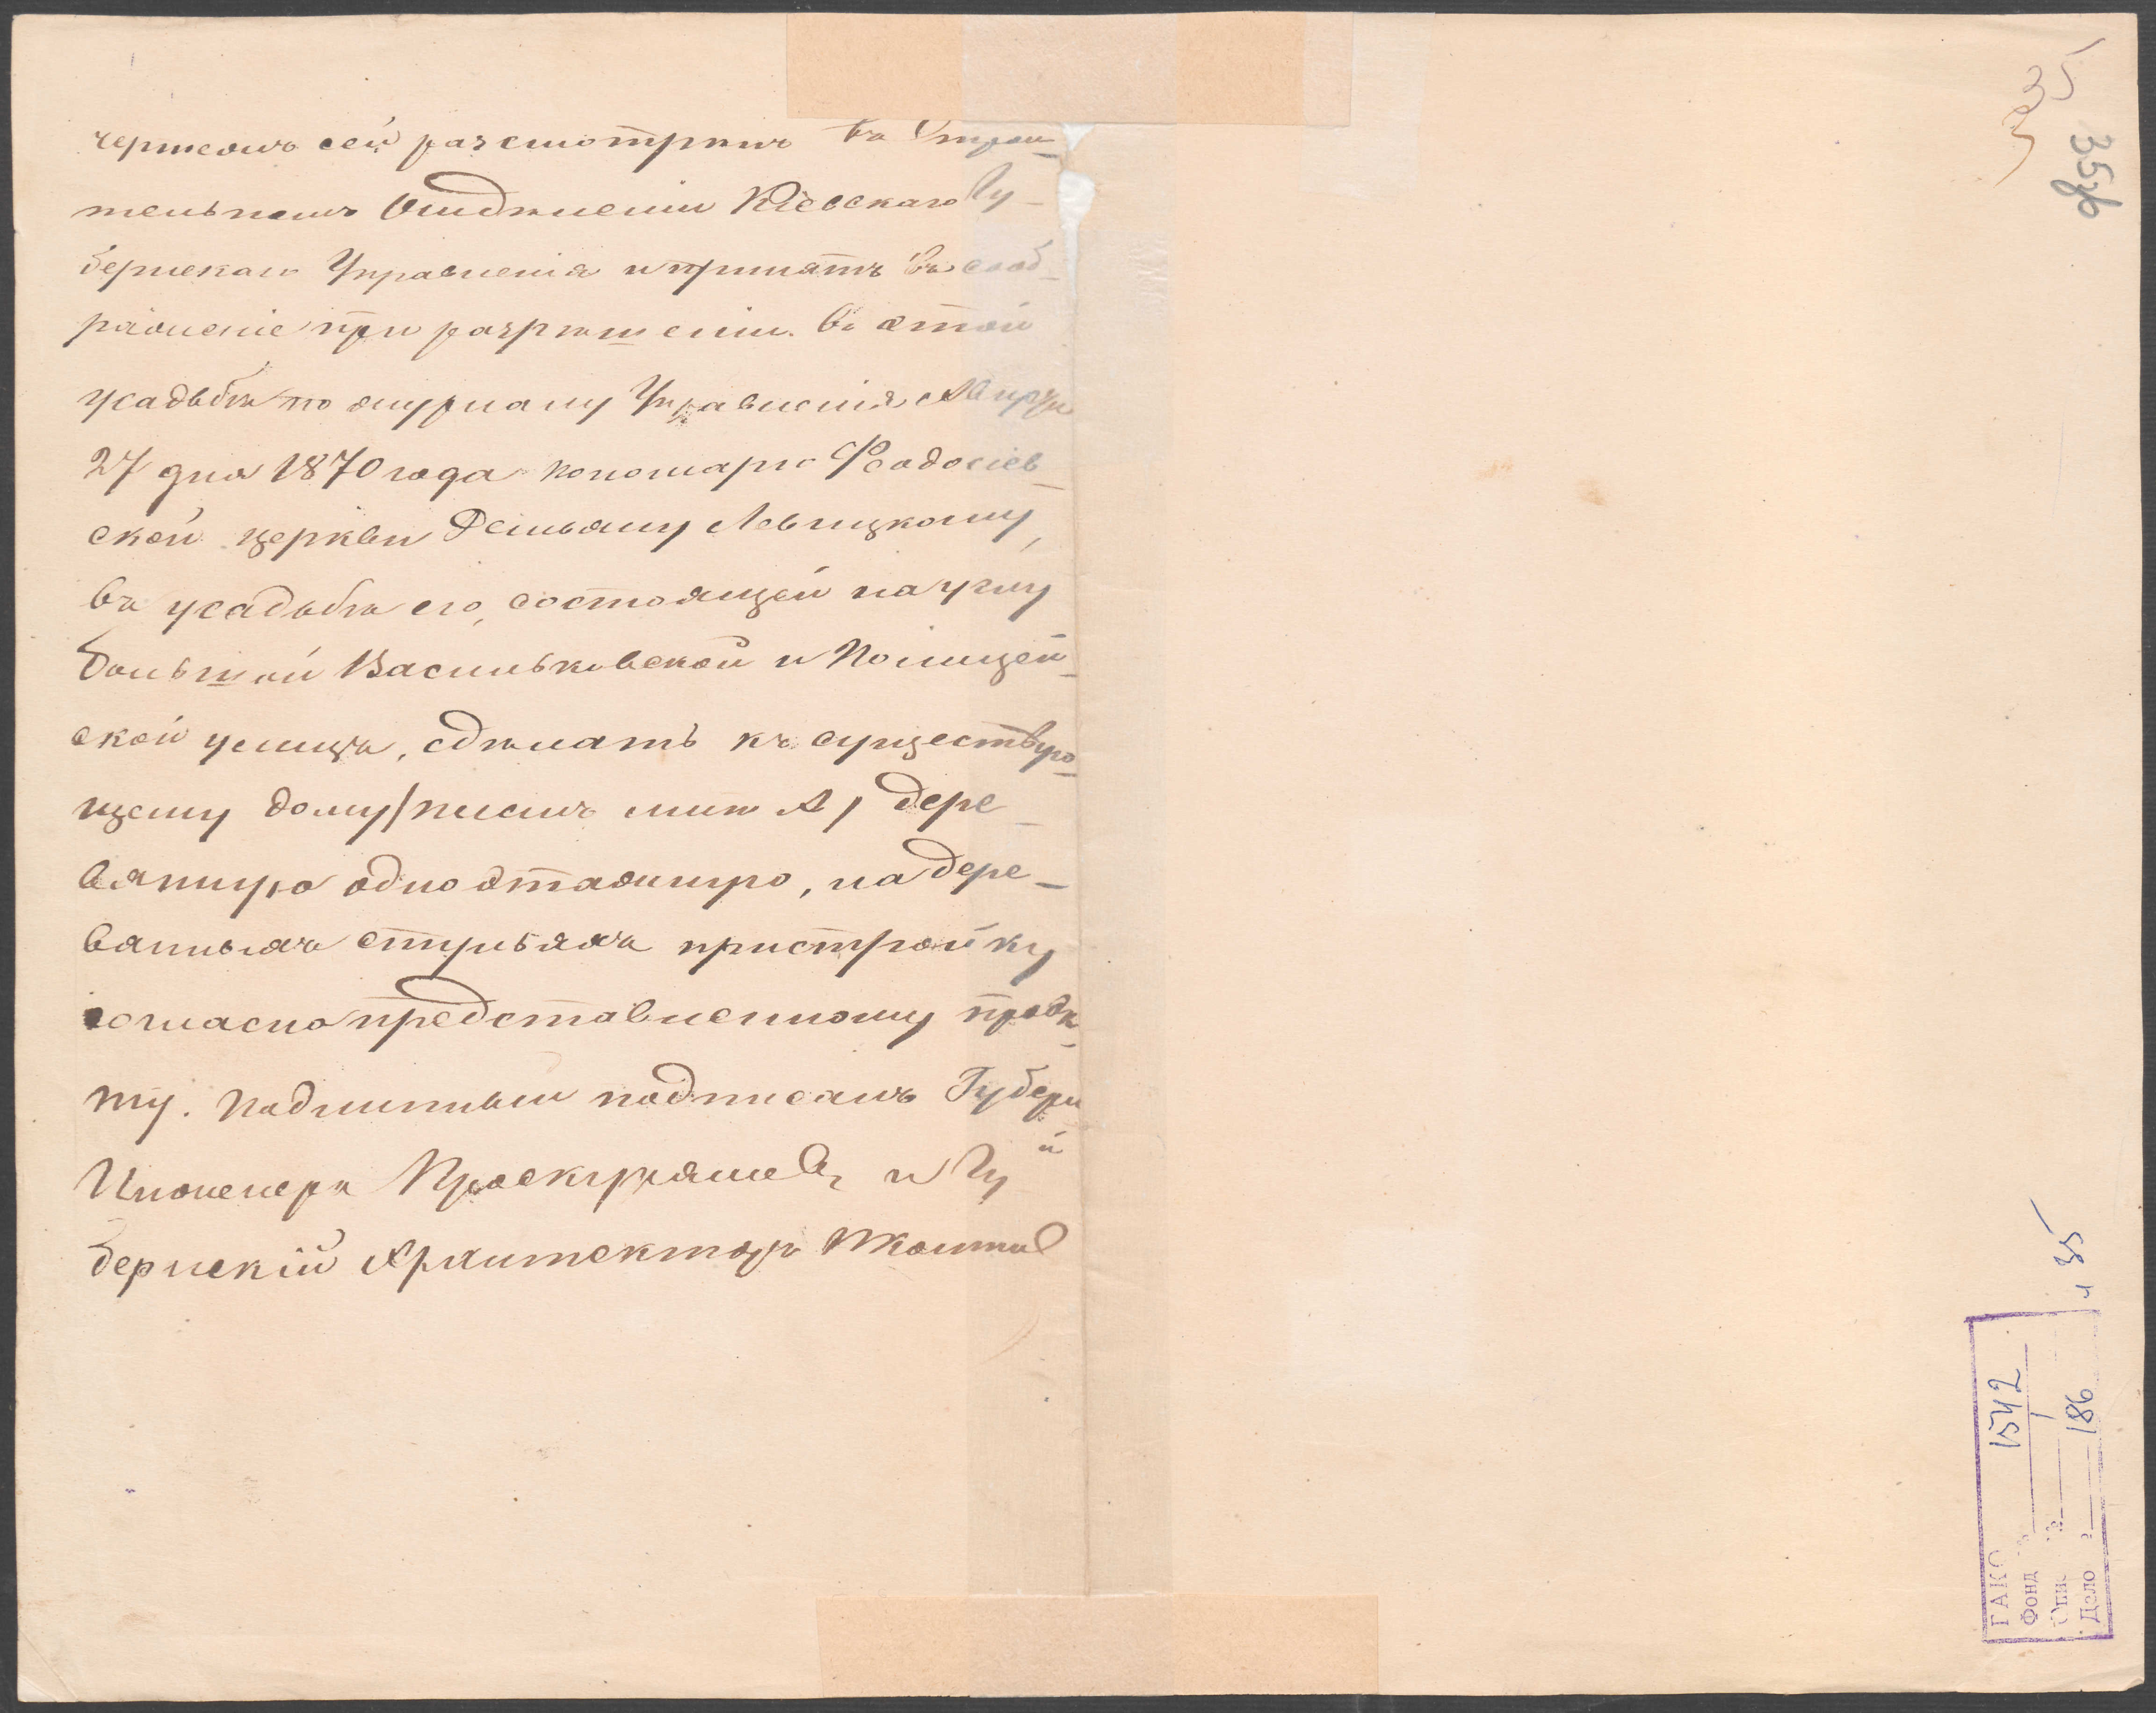 чертежъ сей разсмотрѣнъ въ Строи-
тельномъ Отдѣленіи Кіевскаго Гу-
бернскаго Управленія и принятъ въ сооб-
раженіе при разрѣшеніи въ этой
усадьбѣ по журналу Управленія
27 дня 1870 года пономарю Феодосіев-
ской церкви Демьяну Левицкому,
въ усадьбѣ его, состоящей на углу
большой Васильковской и Полицей-
ской улицъ, сдѣлать къ существую-
щему дому /подъ лит. А/ дере-
вянную одноэтажную, на дере-
вянныхъ стульяхъ пристройку
согласно представленному проэк-
ту. Подлинный подписалъ Губерн
й
Инженеръ Проскуряковъ и Гу
бернскій Архитекторъ
35
35
35об
л 35
ГАКО
Фонд № 1542
Опись № 1
Дело № 186